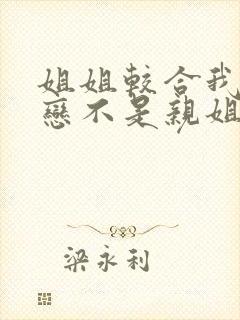 姐姐較合我
戀不是親姐
梁永利